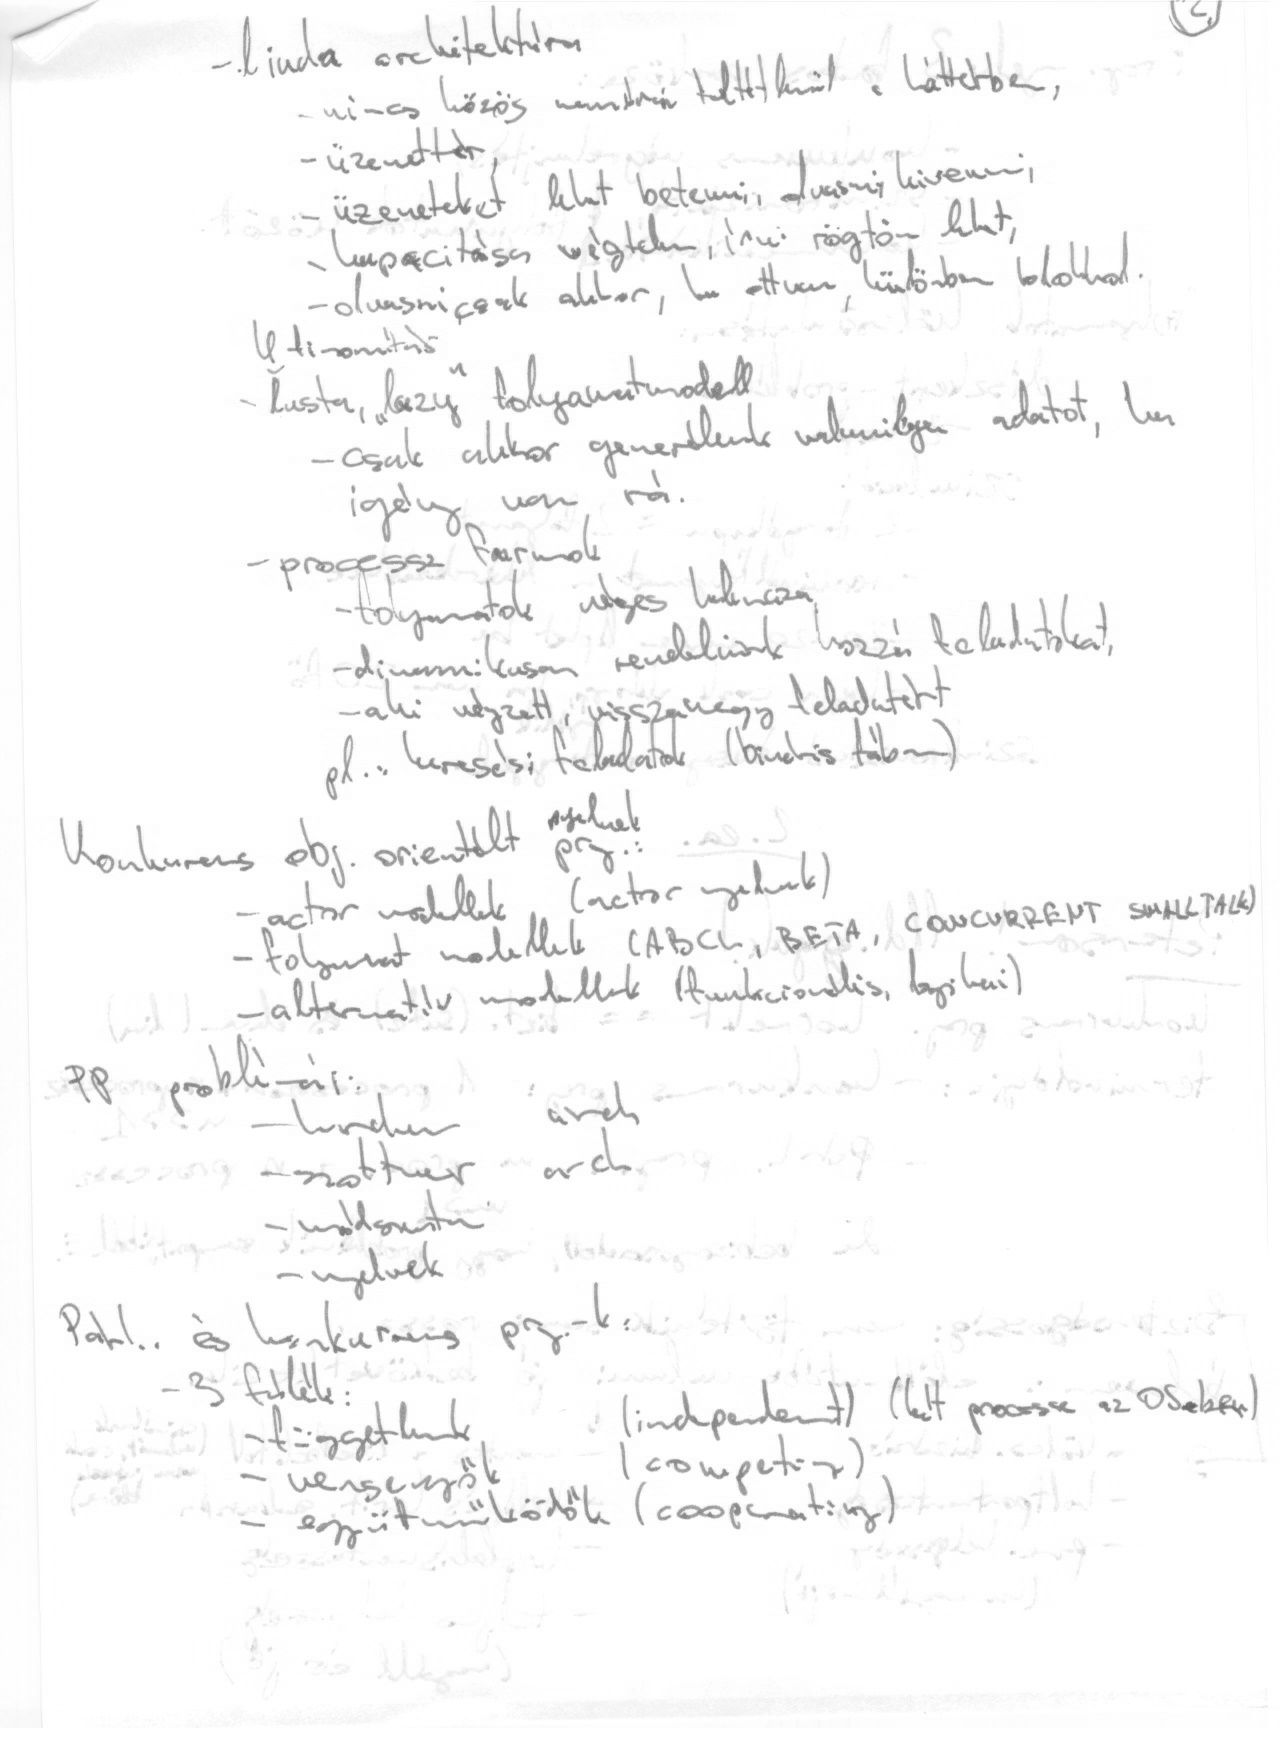 2.
- Linda architektúra
- nincs közös memória feltétlenül a háttérben,
- üzenettér,
- üzeneteket lehet betenni, olvasni, kivenni,
- kapacitása végtelen, írni rögtön lehet,
- olvasni csak akkor, ha ott van, különben blokkol.
- Lusta, „lazy" folyamatmodell
- csak akkor generálunk valamilyen adatot, ha
igény van rá.
- processz farmok
- folyamatok véges halmaza,
- dinamikusan rendelünk hozzá feladatokat,
- aki végzett, visszamegy feladatért
pl.: keresési feladatok (bináris fában)
Konkurens obj. orientált prg. nyelvek:
- actor modellek (actor nyelvek)
- folyamat modellek (ABCL, BETA, CONCURRENT SMALLTALK)
- alternatív modellek (funkcionális, logikai)
PP problémái:
- hardver arch
- szoftver arch
- módszertan
- nyelvek
Párh. és konkurens prg.-k:
- 3 félék:
- függetlenek (independent) (két processz az OS-ekben)
- versengők (competing)
- együttműködők (cooperating)